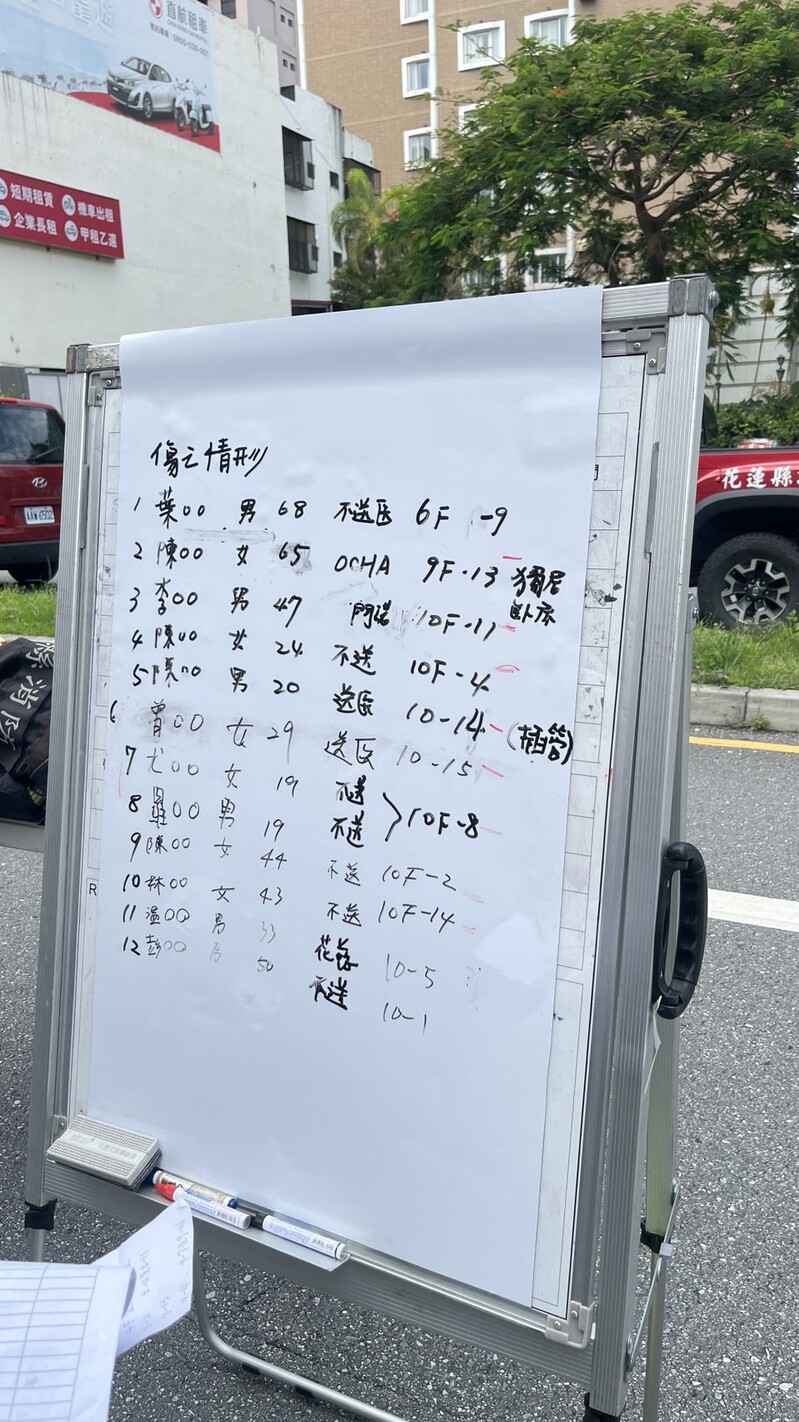 直航租車
0800-006-001
短期租賃
機車出租
企業長租
甲租乙還
花蓮縣
傷亡情形
1 葉○○ 男 68 不送医 6F -9
2 陳○○ 女 65 OCHA 9F-13 獨居
臥床
3 李○○ 男 47 門諾 10F-11
4 陳○○ 女 24 不送 10F-4
5 陳○○ 男 20 送医 10-14 (插管)
6 曾○○ 女 29 送医 10-15
7 尤○○ 女 19 不送
8 羅○○ 男 19 不送 10F-8
9 陳○○ 女 44 不送 10F-2
10 林○○ 女 43 不送 10F-14
11 溫○○ 男 33 花慈 10-5
12 彭○○ 男 50 不送 10-1
R